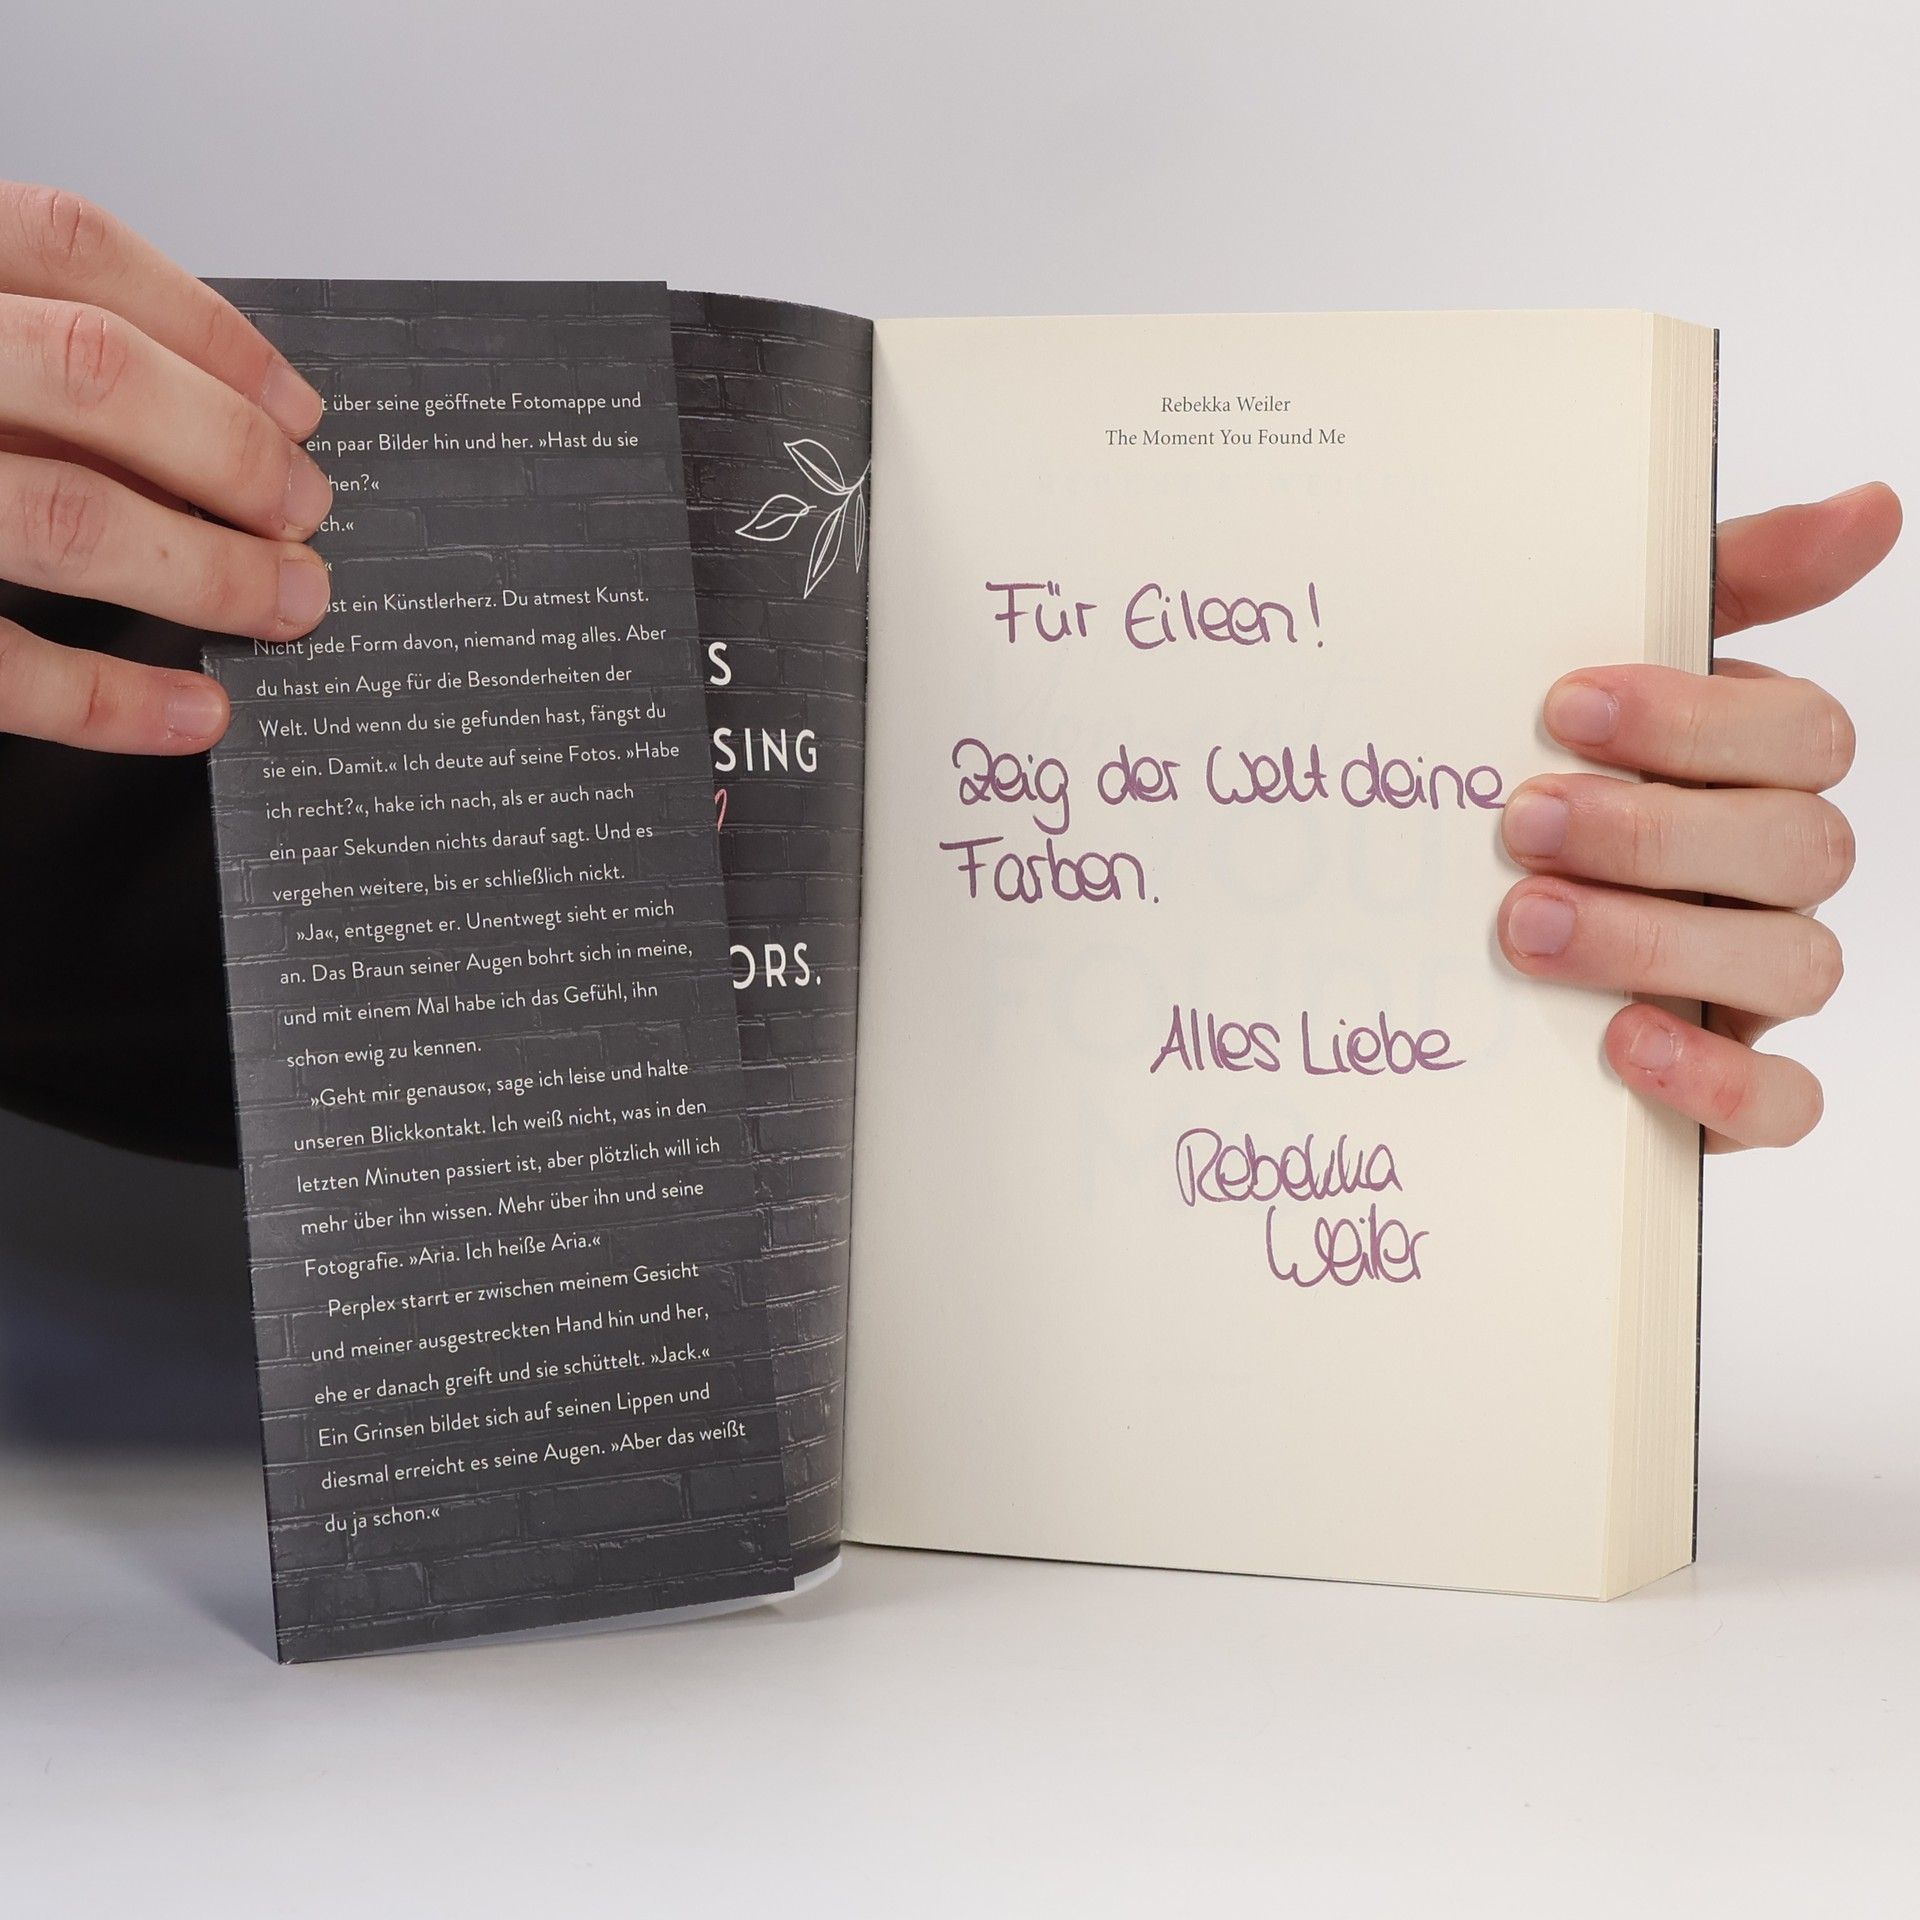 t über seine geöffnete Fotomappe und
ein paar Bilder hin und her. »Hast du sie
hen?«
ch.«
«
st ein Künstlerherz. Du atmest Kunst.
Nicht jede Form davon, niemand mag alles. Aber
du hast ein Auge für die Besonderheiten der
Welt. Und wenn du sie gefunden hast, fängst du
sie ein. Damit.« Ich deute auf seine Fotos. »Habe
ich recht?«, hake ich nach, als er auch nach
ein paar Sekunden nichts darauf sagt. Und es
vergehen weitere, bis er schließlich nickt.
»Ja«, entgegnet er. Unentwegt sieht er mich
an. Das Braun seiner Augen bohrt sich in meine,
und mit einem Mal habe ich das Gefühl, ihn
schon ewig zu kennen.
»Geht mir genauso«, sage ich leise und halte
unseren Blickkontakt. Ich weiß nicht, was in den
letzten Minuten passiert ist, aber plötzlich will ich
mehr über ihn wissen. Mehr über ihn und seine
Fotografie. »Aria. Ich heiße Aria.«
Perplex starrt er zwischen meinem Gesicht
und meiner ausgestreckten Hand hin und her,
ehe er danach greift und sie schüttelt. »Jack.«
Ein Grinsen bildet sich auf seinen Lippen und
diesmal erreicht es seine Augen. »Aber das weißt
du ja schon.«
S
SING
ORS.
Rebekka Weiler
The Moment You Found Me
Für Eileen!
Zeig der Welt deine
Farben.
Alles Liebe
Rebekka
Weiler